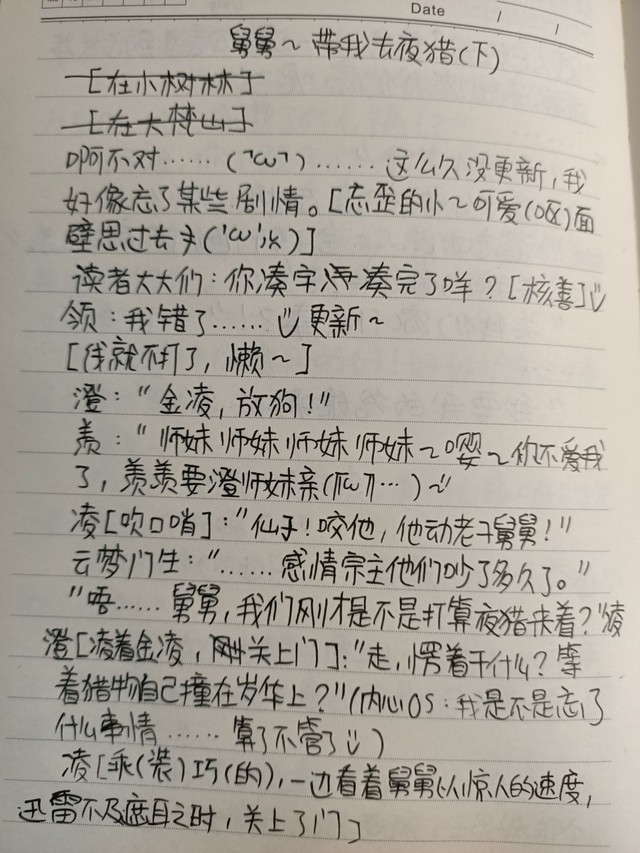 Date / /
舅舅~带我去夜猎(下)
[在小树林]
[在大梵山]
啊不对……(¬ω¬)……这么久没更新,我
好像忘了某些剧情。[忘歪的小~可爱(呕)面
壁思过去
读者大大们:你凑字凑完了咩?[核善]
领:我错了……更新~
[伐就不打了,懒~]
澄:"金凌,放狗!"
羡:"师妹师妹师妹师妹~嘤~你不爱我
了,羡羡要澄师妹亲
凌[吹口哨]:"仙子!咬他,他动老子舅舅!"
云梦门生:"……感情宗主他们吵了多久了。"
"唔……舅舅,我们刚才是不是打算夜猎来着?"凌
澄[凌着金凌,关上门]:"走,愣着干什么?等
着猎物自己撞在岁华上?"(内心OS:我是不是忘了
什么事情……算了不管了)
凌[乖(装)巧(的),一边看着舅舅以惊人的速度,
迅雷不及遮耳之时,关上了门]